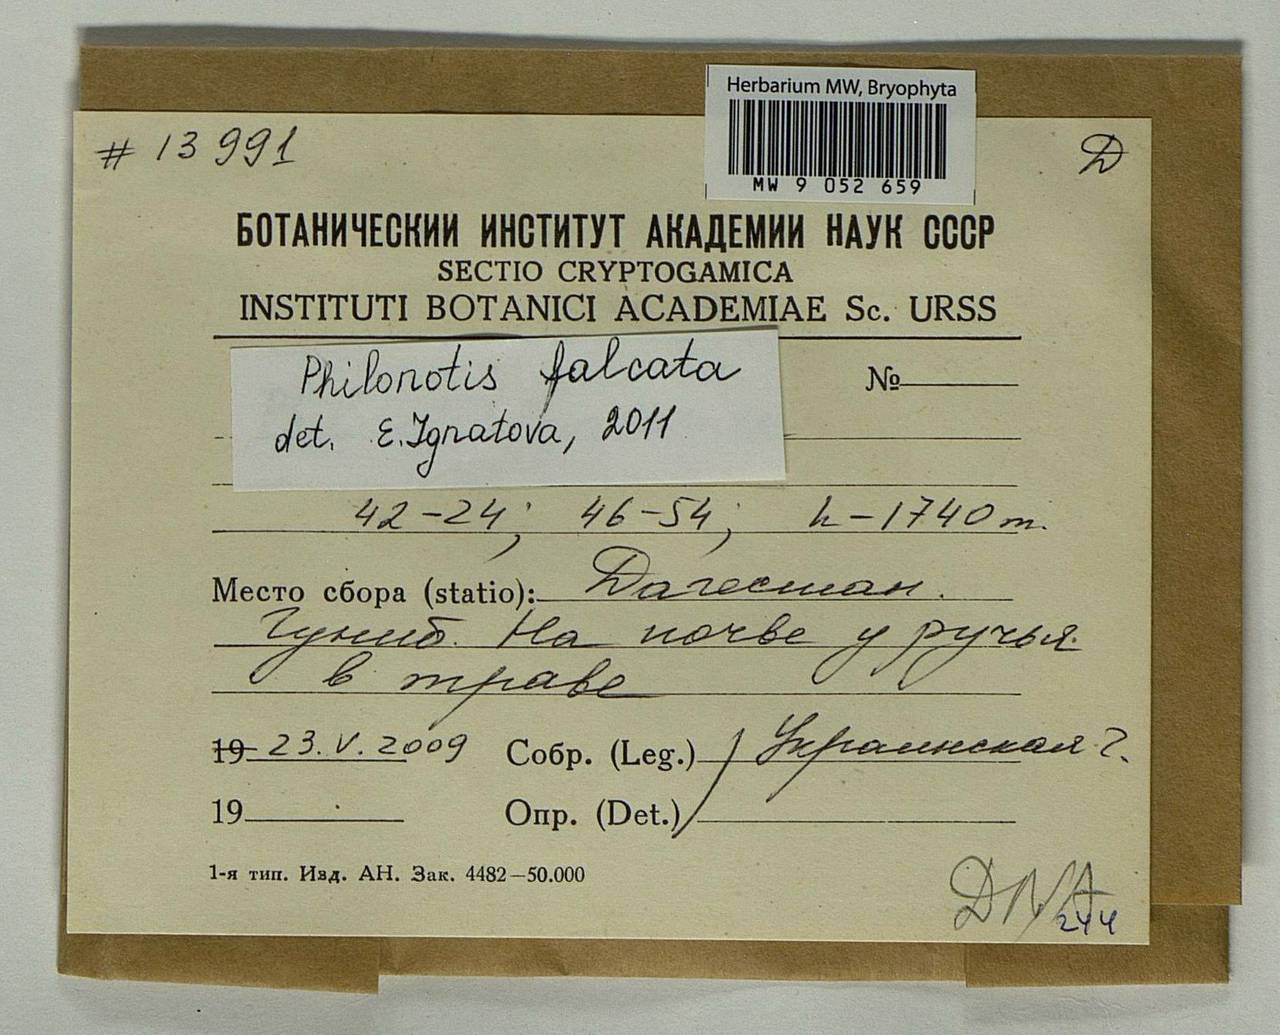 Herbarium MW, Bryophyta
MW 9 052 659
# 13991
Д
БОТАНИЧЕСКИИ ИНСТИТУТ АКАДЕМИИ НАУК СССР
SECTIO CRYPTOGAMICA
INSTITUTI BOTANICI ACADEMIAE Sc. URSS
Philonotis falcata
№
det. E. Ignatova, 2011
42-24; 46-54; h-1740 m.
Место сбора (statio): Дагестан.
Гуниб. На почве у ручья
в траве
19 23.V.2009 Собр. (Leg.) Украинская
19 Опр. (Det.)
1-я тип. Изд. АН. Зак. 4482—50.000
DNA
244